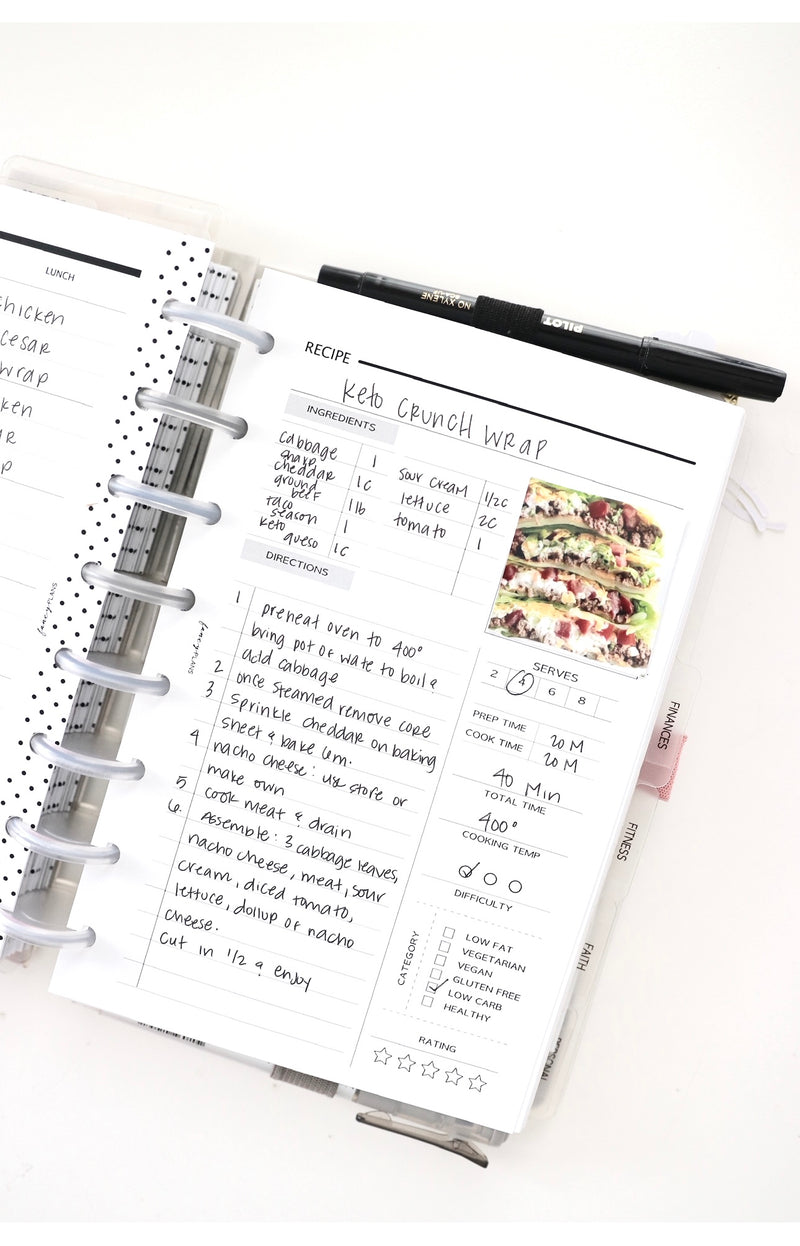 LUNCH
chicken
cesar
wrap
ken
ar
p
fancyPLANS
NO XYLENE
PILOT
RECIPE
Keto Crunch Wrap
INGREDIENTS
cabbage 1
sharp cheddar 1c
ground beef 1lb
taco season 1
keto queso 1c
sour cream 1/2c
lettuce 2c
tomato 1
DIRECTIONS
1 preheat oven to 400°
bring pot of wate to boil &
add cabbage
2 once steamed remove core
3 sprinkle cheddar on baking
sheet & bake 6m.
4 nacho cheese: use store or
make own
5 cook meat & drain
6. Assemble: 3 cabbage leaves,
nacho cheese, meat, sour
cream, diced tomato,
lettuce, dollup of nacho
cheese.
cut in 1/2 & enjoy
fancyPLANS
SERVES
2 4 6 8
PREP TIME 20 M
COOK TIME 20 M
40 Min
TOTAL TIME
400°
COOKING TEMP
DIFFICULTY
CATEGORY
LOW FAT
VEGETARIAN
VEGAN
GLUTEN FREE
LOW CARB
HEALTHY
RATING
FINANCES
FITNESS
FAITH
PERSONAL